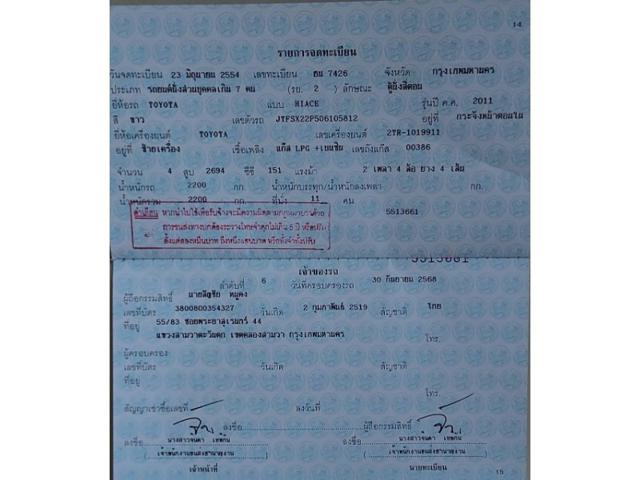 14
รายการจดทะเบียน
วันจดทะเบียน 23 มิถุนายน 2554 เลขทะเบียน ฮน 7426 จังหวัด กรุงเทพมหานคร
ประเภท รถยนต์นั่งส่วนบุคคลเกิน 7 คน (รย. 2) ลักษณะ ตู้นั่งสี่ตอน
ยี่ห้อรถ TOYOTA แบบ HIACE รุ่นปี ค.ศ. 2011
สี ขาว เลขตัวรถ JTFSX22P506105812 อยู่ที่ กระจังหน้าตอนใน
ยี่ห้อเครื่องยนต์ TOYOTA เลขเครื่องยนต์ 2TR-1019911
อยู่ที่ ซ้ายเครื่อง เชื้อเพลิง แก๊ส LPG +เบนซิน เลขถังแก๊ส 00386
จำนวน 4 สูบ 2694 ซีซี 151 แรงม้า 2 เพลา 4 ล้อ ยาง 4 เส้น
น้ำหนักรถ 2200 กก. น้ำหนักบรรทุก/น้ำหนักลงเพลา กก.
น้ำหนักรวม 2200 กก. ที่นั่ง 11 คน
คำเตือน หากนำไปใช้เพื่อรับจ้างจะมีความผิดตามกฎหมายว่าด้วย 5513661
การขนส่งทางบกต้องระวางโทษจำคุกไม่เกิน 5 ปี หรือปรับ
ตั้งแต่สองหมื่นบาท ถึงหนึ่งแสนบาท หรือทั้งจำทั้งปรับ
5513661
เจ้าของรถ
ลำดับที่ 6 วันที่ครอบครองรถ 30 กันยายน 2568
ผู้ถือกรรมสิทธิ์
เลขที่บัตร 3800800354327 วันเกิด 2 กุมภาพันธ์ 2519 สัญชาติ ไทย
ที่อยู่ 55/83 ซอยพระยาสุเรนทร์ 44
แขวงสามวาตะวันตก เขตคลองสามวา กรุงเทพมหานคร โทร.
ผู้ครอบครอง
เลขที่บัตร วันเกิด สัญชาติ
ที่อยู่
โทร.
สัญญาเช่าซื้อเลขที่ ลงวันที่
ลงชื่อ ผู้ถือกรรมสิทธิ์
ลงชื่อ นางสาวจินดา ลงชื่อ นางสาวจินดา
( เจ้าพนักงานขนส่งชำนาญงาน ) ( เจ้าพนักงานขนส่งชำนาญงาน )
เจ้าหน้าที่ นายทะเบียน
15